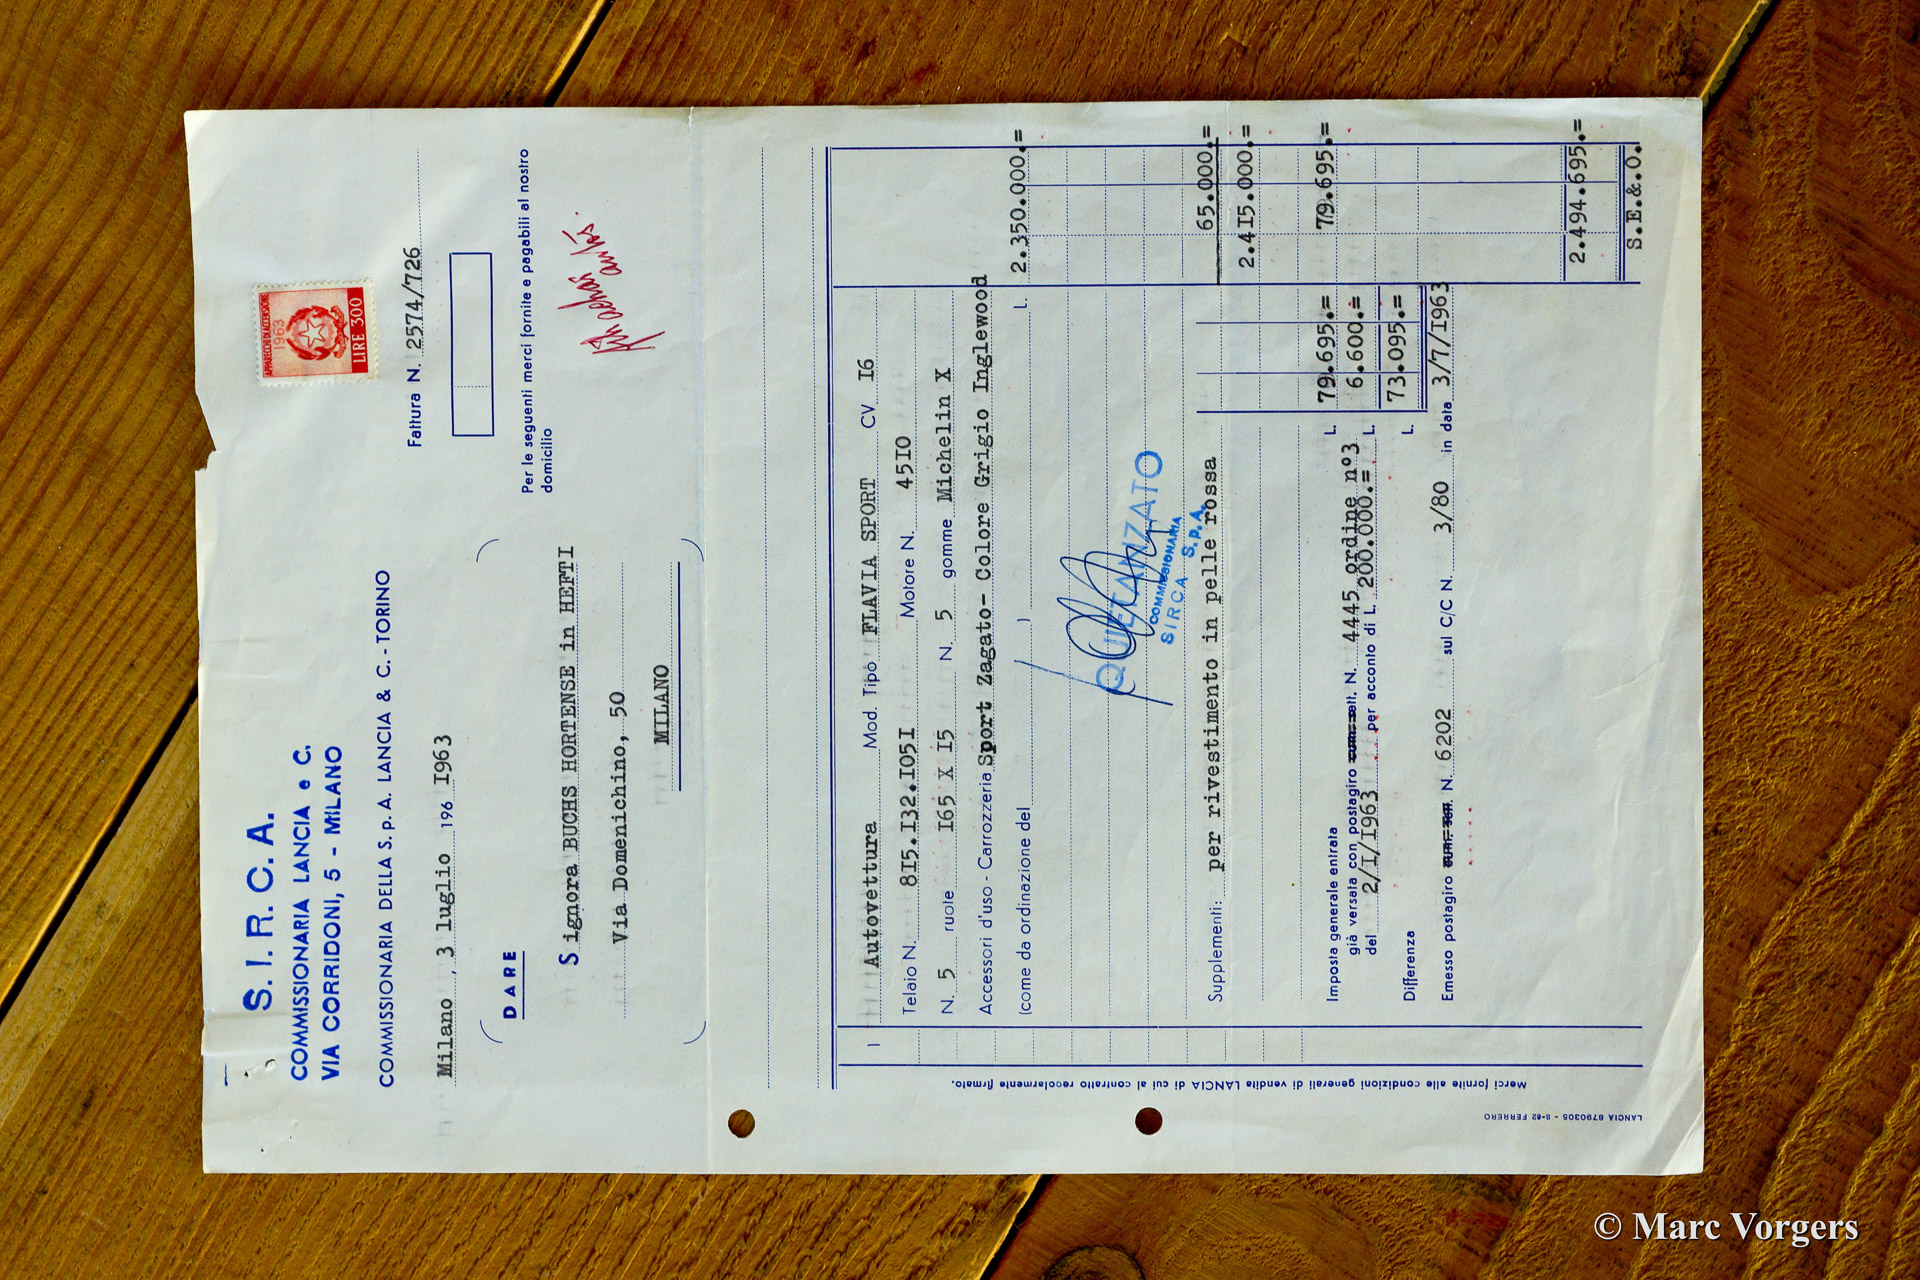 S.I.R.C.A.
COMMISSIONARIA LANCIA e C.
VIA CORRIDONI, 5 - MILANO
COMMISSIONARIA DELLA S. p. A. LANCIA & C. - TORINO
APPARECCHI DI ACCENSIONE
1963
LIRE 300
Milano , 3 luglio 196 I963
Fattura N. 2574/726
DARE
Signora BUCHS HORTENSE in HEFTI
Via Domenichino, 50
MILANO
Per le seguenti merci fornite e pagabili al nostro
domicilio
I Autovettura Mod. Tipo FLAVIA SPORT CV I6
Telaio N. 8I5.I32.I05I Motore N. 45I0
N. 5 ruole I65 X I5 N. 5 gomme Michelin X
Accessori d'uso - Carrozzeria Sport Zagato- Colore Grigio Inglewood
(come da ordinazione del ) L. 2.350.000.=
QUIETANZATO
COMMISSIONARIA
SIRCA S.p.A.
Supplementi: per rivestimento in pelle rossa 65.000.=
2.4I5.000.=
Imposta generale entrata L. 79.695.= 79.695.=
già versata con postagiro N. 4445 ordine n°3
del 2/I/I963 per acconto di L. 200.000.= L. 6.600.=
Differenza L. 73.095.=
Emesso postagiro N. 6202 sul C/C N. 3/80 in data 3/7/I963
2.494.695.=
S.E.&.O.
Merci fornite alle condizioni generali di vendita LANCIA di cui al contratto regolarmente firmato.
LANCIA 8790305 - 8-62 FERRERO
© Marc Vorgers